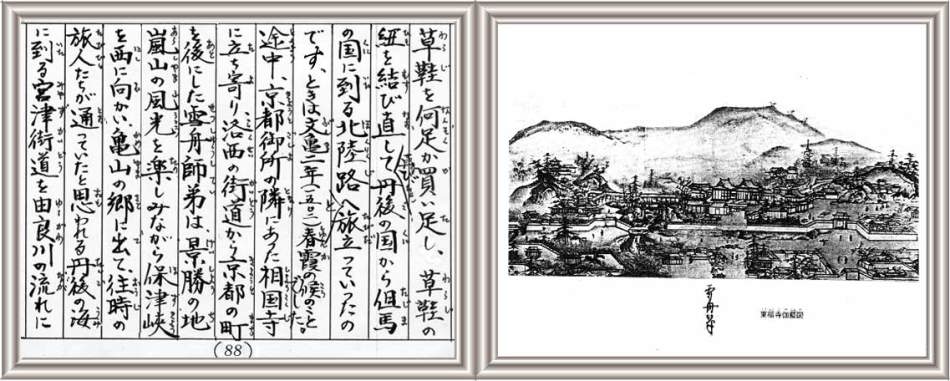 草鞋を何足か買い足し、草鞋の
紐を結び直して丹後の国から但馬
の国に到る北陸路へ旅立っていったの
です。ときは文亀二年(一五〇二)春霞の候のことでした。
途中、京都御所の隣にあった相国寺
に立ち寄り洛西の街道から京都の町
を後にした雪舟師弟は、景勝の地
嵐山の風光を楽しみながら保津峡
を西に向かい、亀山の郷に出て、往時の
旅人たちが通っていたと思われる丹後の海
に到る宮津街道を由良川の流れに
(88)
雪舟筆
東福寺伽藍図